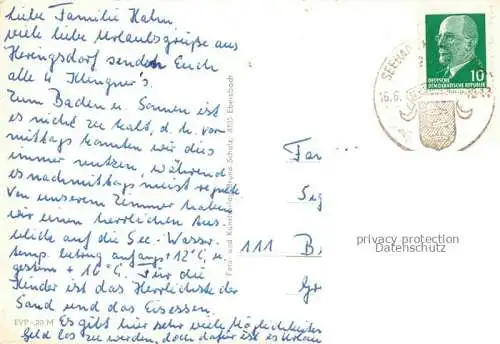 Liebe Familie Hahn,
viele liebe Urlaubsgrüße aus
Heringsdorf senden Euch
alle 4 Klingner's.
Zum Baden u. Sonnen ist
es nicht zu kalt, d. h. vor-
mittags konnten wir dies
immer nutzen, während
es nachmittags meist regnete
Von unserem Zimmer haben
wir einen herrlichen Aus-
blick auf die See - Wasser-
temp. betrug anfangs +12°C, u.
gestern +16°C. Für die
Kinder ist das Herrlichste der
Sand und das Eisessen.
Es gibt hier sehr viele Möglichkeiten
Geld los zu werden, doch dafür ist es Urlau
EVP -,20 M
Foto- und Kunstverlag Bruno Scholz, 8705 Ebersbach
Fa
111 B
DEUTSCHE
DEMOKRATISCHE REPUBLIK
10
SEEBAD
16.6.
privacy protection
Datenschutz